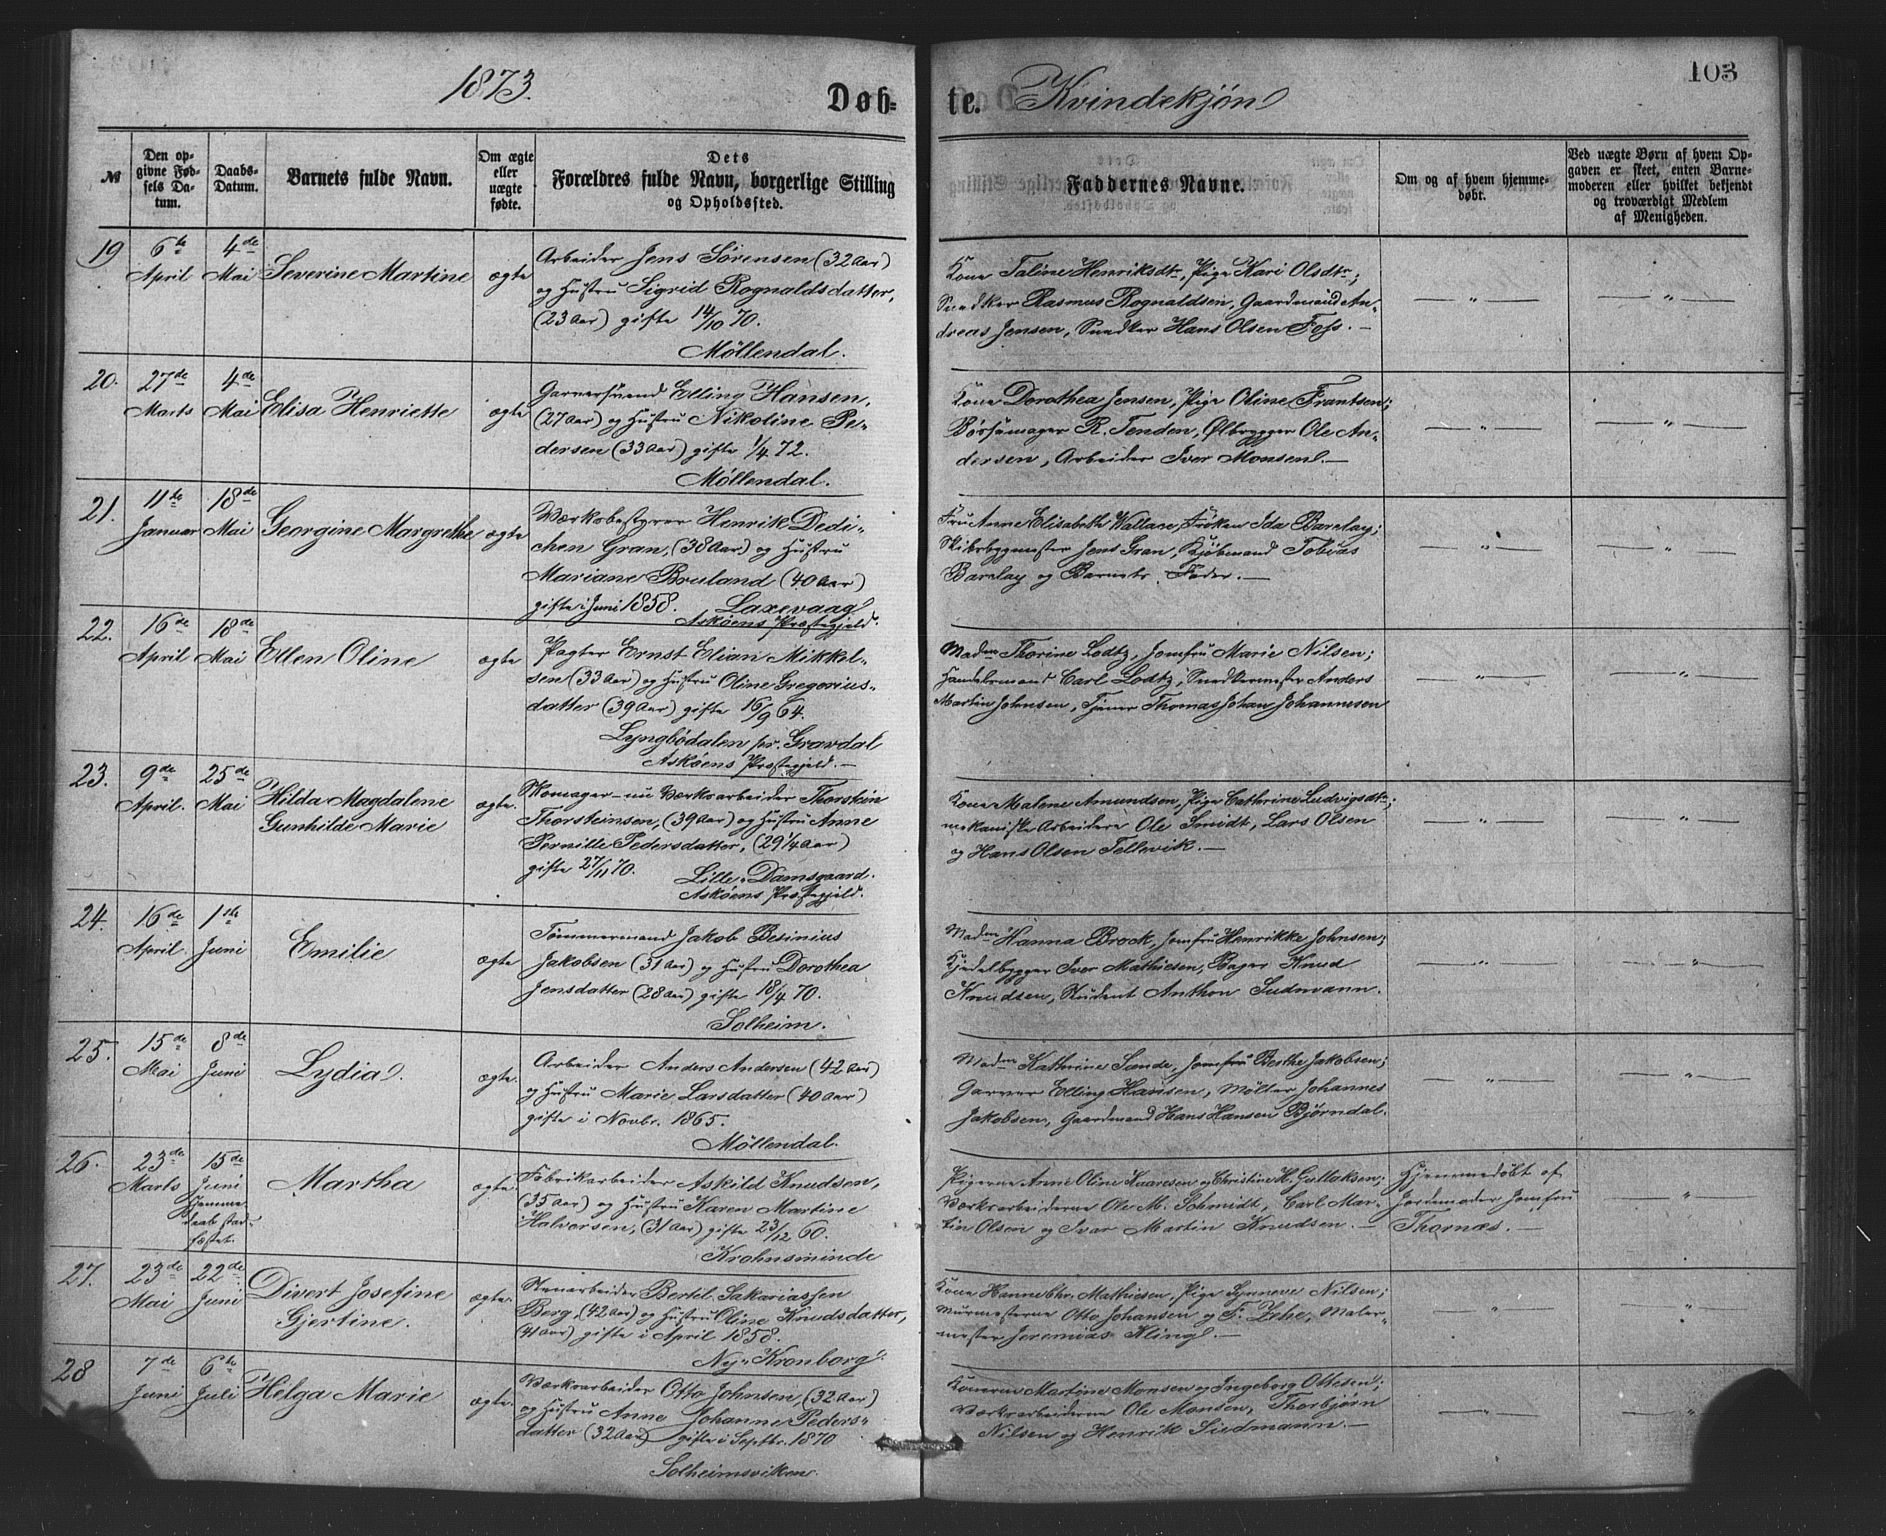 1873.
Døb-
te. Kvindekjøn
103
№
Den op-
givne Fød-
sels Da-
tum.
Daabs-
Datum.
Barnets fulde Navn.
Om ægte
eller
uægte
fødte.
Dets
Forældres fulde Navn, borgerlige Stilling
og Opholdssted.
Faddernes Navne.
Om og af hvem hjemme-
døbt.
Ved uægte Børn af hvem Op-
gaven er skeet, enten Barne-
moderen eller hvilket bekjendt
og troværdigt Medlem
af Menigheden.
19
6te
April
4de
Mai
Severine Martine
ægte
Arbeider Jens Sørensen (32 Aar)
og Hustru Sigrid Rognaldsdatter,
(23 Aar) gifte 14/10 70.
Møllendal.
Kone Taline Henriksdtr, Pige Kari Olsdtr;
Snedker Rasmus Rognaldsen, Gaardmand An-
dreas Jensen, Snedker Hans Olsen Foss. —
— " —
— " —
20.
27de
Marts
4de
Mai
Elisa Henriette
ægte
Garversvend Elling Hansen,
(27 Aar) og Hustru Nikoline Pe-
dersen (33 Aar) gifte 1/4 72.
Møllendal.
Kone Dorothea Jensen, Pige Oline Frantsen;
Børsemager R. Tenden, Ølbrygger Ole An-
dersen, Arbeider Iver Monsen. —
— " —
— " —
21.
11te
Januar
18de
Mai
Georgine Margrethe
ægte
Værksbestyrer Henrik Dedi-
chen Gran, (38 Aar) og Hustru
Mariane Bruland (40 Aar)
gifte i Juni 1858. Laxevaag
Askøens Præstegjeld.
Fru Anne Elisabeth Wallace, Frøken Ida Barclay;
Skibsbygmester Jens Gran, Kjøbmand Tobias
Barclay og Barnets Fader. —
— " —
— " —
22.
16de
April
18de
Mai
Ellen Oline
ægte
Pagter Ernst Elian Mikkel-
sen (33 Aar) og Hustru Oline Gregorius-
datter (39 Aar) gifte 16/9 64.
Lyngbödalen pr. Gravdal
Askøens Præstegjeld. —
Madm Thorine Lodtz, Jomfru Marie Nilsen;
Handelsmand Carl Lodtz, Snedkermester Anders
Martin Johnsen, Tjener Thomas Johan Johannesen
— " —
— " —
23.
9de
April.
25de
Mai
Hilda Magdalene
Gunhilde Marie
ægte.
Skomager nu Værksarbeider Thorstein
Thorsteinsen, (39 Aar) og Hustru Anne
Pernille Pedersdatter, (29 1/4 Aar)
gifte 27/11 70.
Lille Damsgaard.
Askøens Præstegjeld.
Kone Malene Amundsen, Pige Cathrine Ludvigsdtr;
mekaniske Arbeidere Ole Smidt, Lars Olsen
og Hans Olsen Tellevik. —
— " —
— " —
24.
16de
April.
1ste
Juni
Emilie
ægte
Tømmermand Jakob Besinius
Jakobsen (31 Aar) og Hustru Dorothea
Jensdatter (28 Aar) gifte 18/4 70.
Solheim.
Madm Hanna Brock, Jomfru Henrikke Johnsen;
Kjedelbygger Iver Mathiesen, Bager Knud
Knudsen, Student Anthon Sudmann.
— " —
— " —
25.
15de
Mai
8de
Juni
Lydia.
ægte.
Arbeider Anders Andersen (42 Aar)
og Hustru Marie Larsdatter (40 Aar)
gifte i Novbr. 1865.
Møllendal.
Madm Kathrine Sande, Jomfru Berthe Jakobsen;
Garver Elling Hansen, Møller Johannes
Jakobsen, Gaardmand Hans Hansen Bjørndal.
— " —
— " —
26.
23de
Marts
15de
Juni
Hjemme-
daab stad-
fæstet.
Martha
ægte.
Fabrikarbeider Askild Knudsen,
(35 Aar) og Hustru Karen Martine
Halvorsen, (31 Aar) gifte 23/12 60.
Krohnsminde
Pigerne Anne Oline Knaresen og Christine H. Gullaksen;
Værksarbeiderne Ole M. Schmidt, Carl Mar-
tin Olsen og Ivar Martin Knudsen. —
Hjemmedøbt af
Jordemoder Jomfru
Thornæs. —
— " —
27.
23de
Mai
22de
Juni
Divert Josefine
Gjertine.
ægte.
Stenarbeider Bertil Sakariassen
Berg, (42 Aar) og Hustru Oline Knudsdatter,
(41 Aar) gifte i April 1858.
Ny-Kronborg
Kone Hanne Mathiesen, Pige Synneve Nilsen;
Murmesterne Otto Johansen og F. Zehe, Maler-
mester Jeremias Klingl. —
— " —
— " —
28
7de
Juni
6te
Juli
Helga Marie
ægte.
Værksarbeider Otto Johnsen, (32 Aar)
og Hustru Anne Johanne Peders-
datter (32 Aar) gifte i Septbr. 1870
Solheimsviken.
Konerne Martine Monsen og Ingeborg Ottesen;
Værksarbeiderne Ole Monsen, Thorbjørn
Nilsen og Henrik Sudmann. —
— " —
— " —